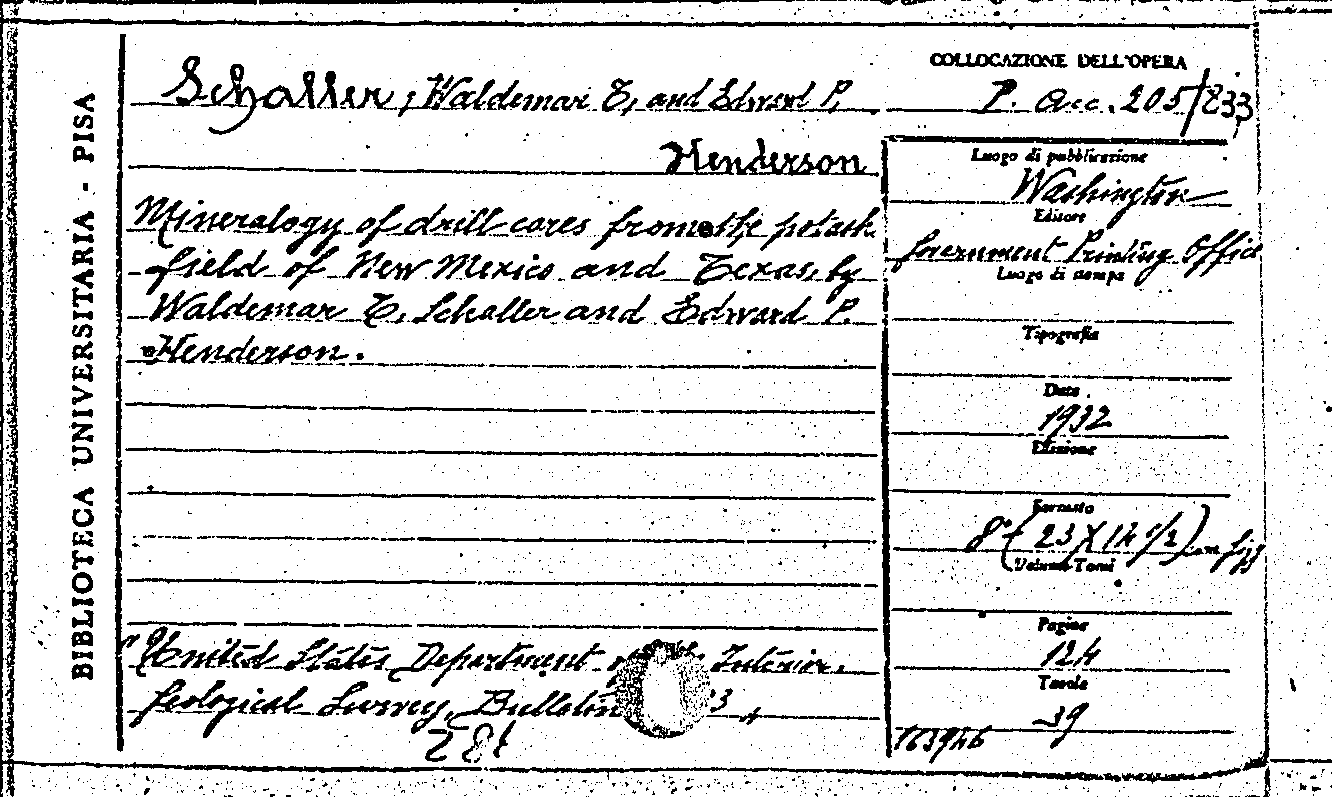 BIBLIOTECA UNIVERSITARIA - PISA
Schaller, Waldemar T, and Edward P.
Henderson
Mineralogy of drill cores from the potash
field of New Mexico and Texas, by
Waldemar T. Schaller and Edward P.
Henderson.
United States Department of the Interior.
Geological Survey, Bulletin
281
COLLOCAZIONE DELL'OPERA
P. acc. 205/833
Luogo di pubblicazione
Washington
Editore
Government Printing Office
Luogo di stampa
Tipografia
Data
1932
Edizione
Formato
8° (23 X 14 1/2) con figg
Volumi-Tomi
Pagine
124
Tavole
39
163946